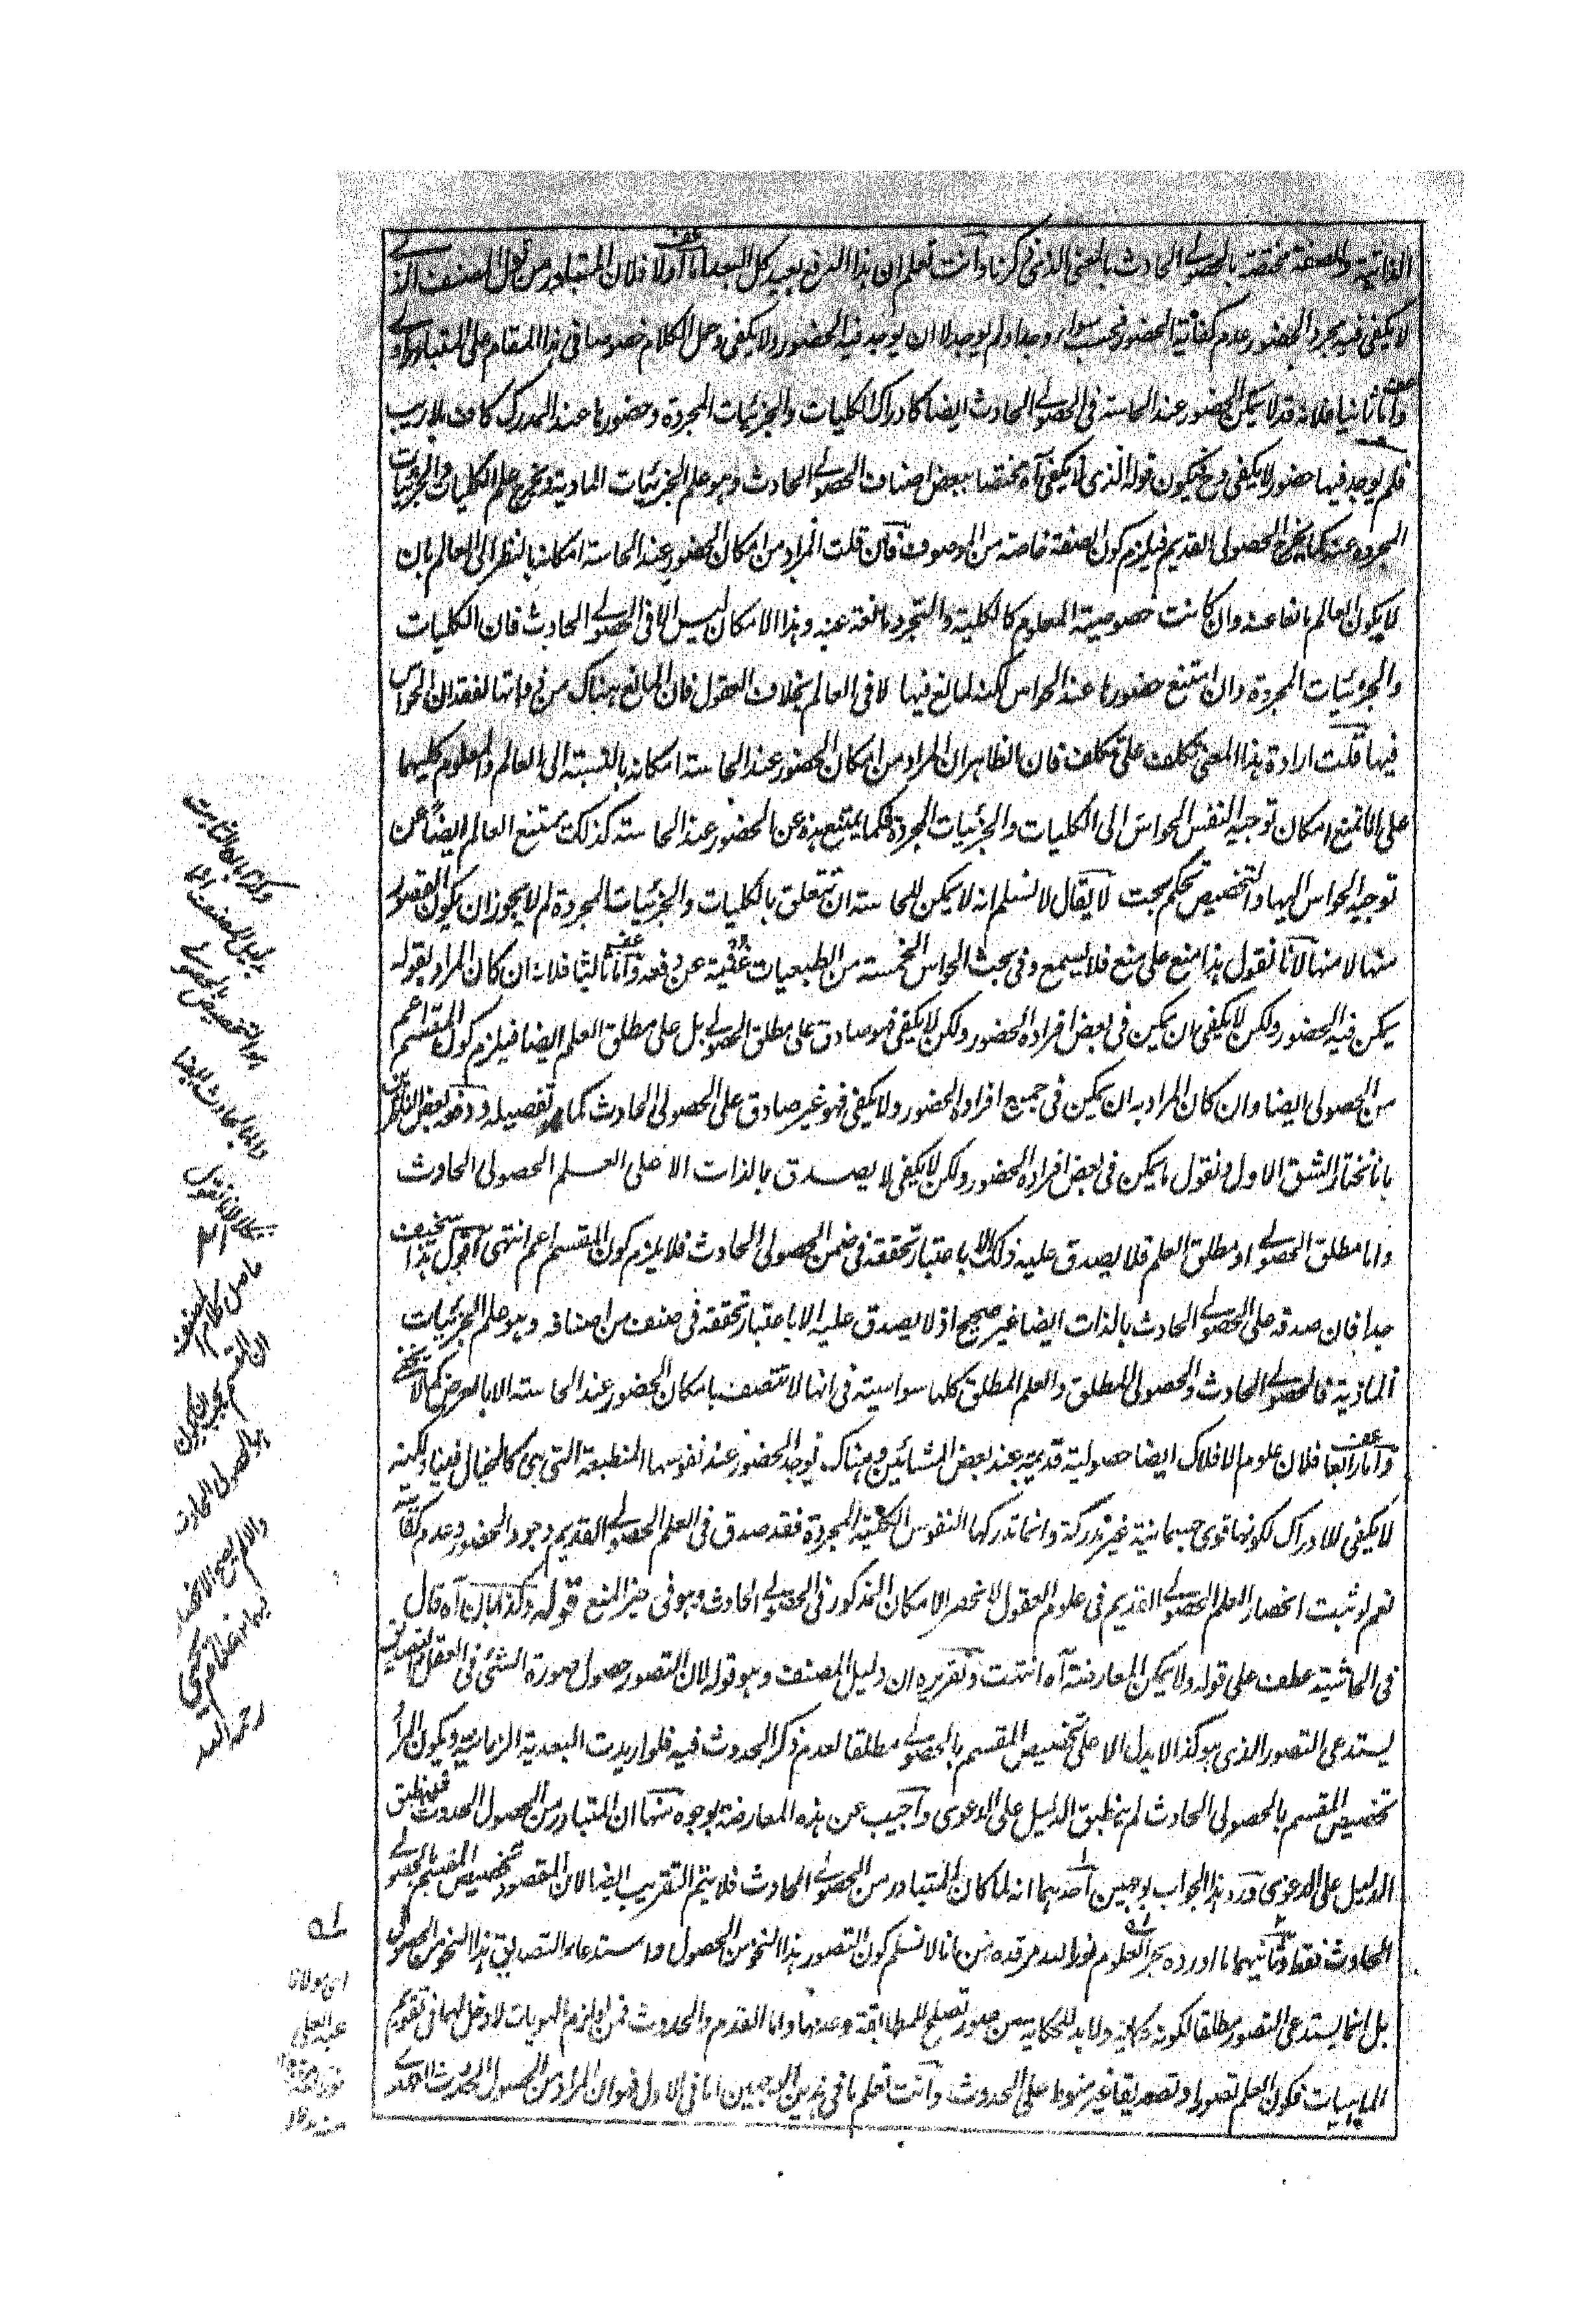 الذاتية والصفة مختصة بالحصولي الحادث بالمعنى الذي ذكرنا وانت تعلم ان هذا الدفع بعيد كل البعد اما اولا فلان المتبادر من قول المصنف الذي
لا يكفي فيه مجرد الحضور عدم كفاية الحضور فحسب سواء وجد او لم يوجد لا ان يوجد فيه الحضور ولا يكفي وحمل الكلام خصوصا في هذا المقام على المتبادر
واما ثانيا فلانه قد لا يمكن الحضور عند الحاسة في الحصولي الحادث ايضا كادراك الكليات والجزئيات المجردة وحضورها عند المدرك كاف بلا ريب
فلم يوجد فيها حضور لا يكفي وح فيكون قوله الذي لا يكفي آه مختصا ببعض اصناف الحصولي الحادث وهو علم الجزئيات المادية ويخرج علم الكليات والجزئيات
المجردة عنه كما يخرج الحصولي القديم فيلزم كون الصفة خاصة من الموصوف فان قلت المراد من امكان الحضور عند الحاسة امكانه بالنظر الى العالم بان
لا يكون العالم مانعا عنه وان كانت خصوصية المعلوم كالكلية والتجرد مانعة عنه وهذا الامكان ليس الا في الحصولي الحادث فان الكليات
والجزئيات المجردة وان امتنع حضورها عند الحواس لكنه لمانع فيها لا في العالم بخلاف العقول فان المانع هناك من ذواتها لفقدان الحواس
فيها قلت ارادة هذا المعنى تكلف على تكلف فان الظاهر ان المراد من امكان الحضور عند الحاسة امكانه بالنسبة الى العالم والمعلوم كليهما
على انا نمنع امكان توجيه النفس الحواس الى الكليات والجزئيات المجردة فكما يمتنع هذه عن الحضور عند الحاسة كذلك يمتنع العالم ايضا عن
توجيه الحواس اليها والتخصيص تحكم بحت لا يقال لا نسلم انه لا يمكن للحاسة ان تتعلق بالكليات والجزئيات المجردة لم لا يجوز ان يكون القصور
منها لا منها لانا نقول هذا منع على منع فلا يسمع وفي بحث الحواس الخمسة من الطبعيات غنية عن دفعه واما ثالثا فلانه ان كان المراد بقوله
يمكن فيه الحضور ولكن لا يكفي ان يمكن في بعض افراده الحضور ولكن لا يكفي فهو صادق على مطلق الحصولي بل على مطلق العلم ايضا فيلزم كون المقسم اعم
من الحصولي ايضا وان كان المراد به ان يمكن في جميع افراده الحضور ولا يكفي فهو غير صادق على الحصولي الحادث كما مر تفصيله ودفعه بعض الناظرين
بانا نختار الشق الاول ونقول ما يمكن في بعض افراده الحضور ولكن لا يكفي لا يصدق بالذات الا على العلم الحصولي الحادث
واما مطلق الحصولي او مطلق العلم فلا يصدق عليه ذلك الا باعتبار تحققه في ضمن الحصولي الحادث فلا يلزم كون المقسم اعم انتهى اقول هذا سخيف
جدا فان صدقه على الحصولي الحادث بالذات ايضا غير صحيح اذ لا يصدق عليه الا باعتبار تحققه في صنف من اصنافه وهو علم الجزئيات
المادية فالحصولي الحادث والحصولي المطلق والعلم المطلق كلها سواسية في انها لا تتصف بامكان الحضور عند الحاسة الا بالعرض كما لا يخفى
واما رابعا فلان علوم الافلاك ايضا حصولية قديمة عند بعض المشائين وهناك يوجد الحضور عند نفوسها المنطبعة التي هي كالخيال فينا ولكنه
لا يكفي للادراك لكونها قوى جسمانية غير مدركة وانما تدركها النفوس الكلية المجردة فقد صدق في العلم الحصولي القديم وجود الحضور وعدم كفايته
نعم لو ثبت انحصار العلم الحصولي القديم في علوم العقول لانحصر الامكان المذكور في الحصولي الحادث وهو في حيز المنع قوله وكذا بان آه قال
في الحاشية عطف على قوله ولا يمكن المعارضة آه انتهت وتقريره ان دليل المصنف وهو قوله لان التصور حصول صورة الشئ في العقل والتصديق
يستدعي التصور الذي هو كذا لا يدل الا على تخصيص المقسم بالحصولي مطلقا لعدم ذكر الحدوث فيه فلو اريدت البعدية الزمانية ويكون المراد
تخصيص المقسم بالحصولي الحادث لم ينطبق الدليل على الدعوى واجيب عن هذه المعارضة بوجوه منها ان المتبادر من الحصول الحدوث فينطبق
الدليل على الدعوى ورد هذا الجواب بوجهين احدهما انه لما كان المتبادر من الحصولي الحادث فلا يتم التقريب ايضا لان المقصود تخصيص المقسم بالحصولي
الحادث فقط وثانيهما ما اورده بحر العلوم نور الله مرقده من انا لا نسلم كون التصور هذا النحو من الحصول واستدعاء التصديق هذا النحو من الحصول
بل انما يستدعي التصور مطلقا لكونه حكاية ولا بد للحكاية من صور تصلح للمطابقة وعدمها واما القدم والحدوث فمن لوازم الهويات لا دخل لهما في تقويم
الماهيات فكون العلم تصورا وتصديقا غير منوط على الحدوث وانت تعلم ما في هذين الوجهين اما في الاول فهو ان المراد من الحصول الحدوث
بدليل المصنف
التخصيص بالحصولي
واما بالحادث ايضا
١٢
حاصل كلام المصنف
ان المقسم يجب ان يكون
الحصولي الحادث
والا لم يصح الانحصار
رحمه الله
له
اي مولانا
عبد العلي
نور الله مرقده
منه مد ظله